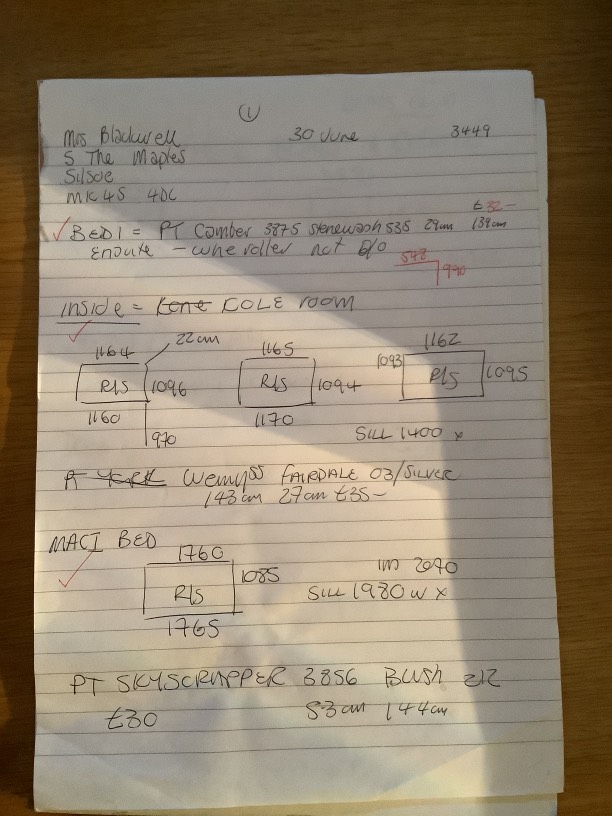 1
Mrs Blackwell 30 June 3449
5 The Maples
Silsoe
MK45 4DL
£32-
BED 1 = PT Camber 3875 stonewash 535 29cm 139cm
Ensuite - whe roller not B/O
548
990
inside = COLE room
22cm
1164 1165 1162
R/S 1096 R/S 1094 1093 R/S 1095
1160 1170
970 SILL 1400 x
Wemyss FAIRDALE 03/SILVER
143cm 27cm £35-
MACI BED
1760
R/S 1085 2040
SILL 1980 W x
1765
PT SKYSCRAPPER 3856 Blush 212
£30 53cm 144cm